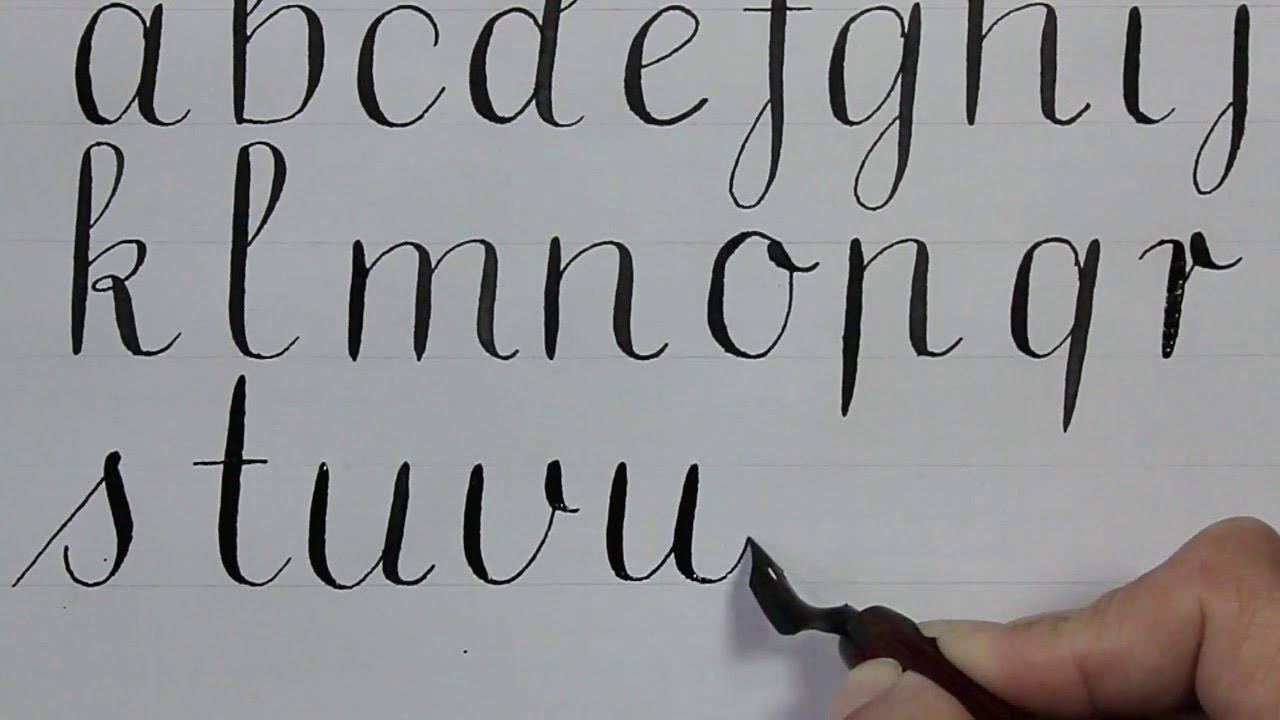 a b c d e f g h i j
k l m n o p q r
s t u v w